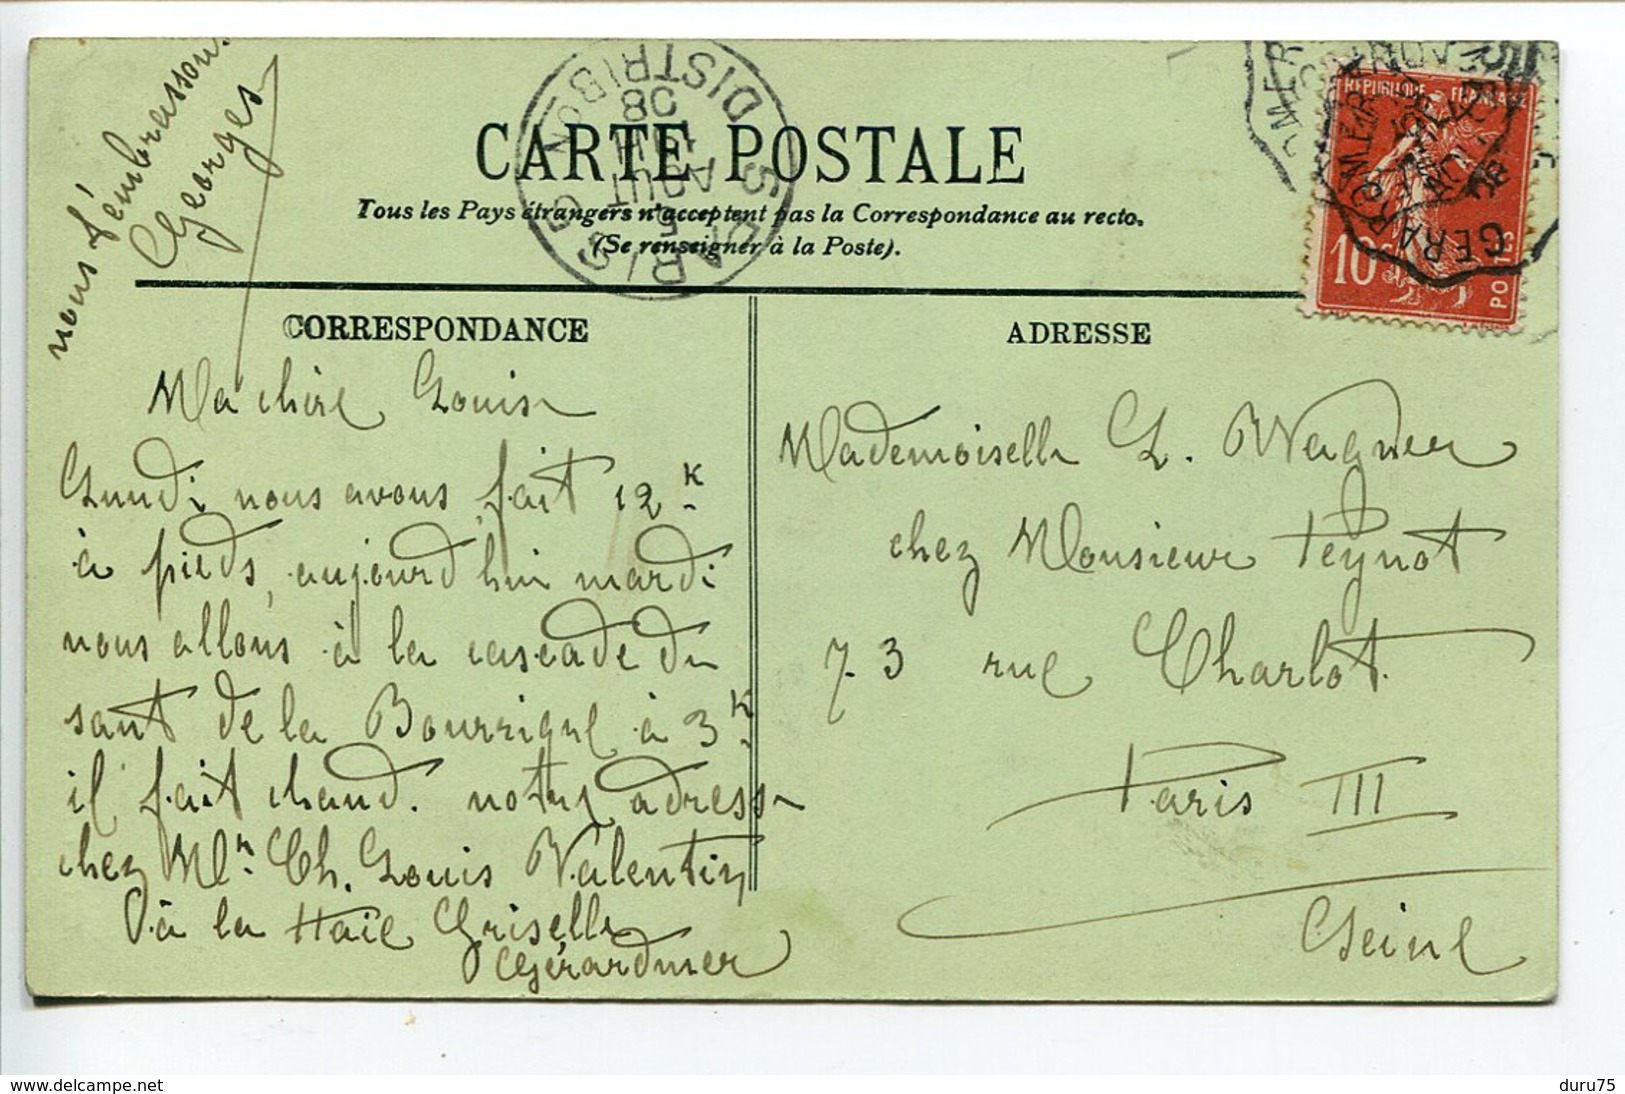 nous t'embrasson.
Georges
CARTE POSTALE
Tous les Pays étrangers n'acceptent pas la Correspondance au recto.
(Se renseigner à la Poste).
PARIS
DISTRIBON
5
AOUT
08
REPUBLIQUE FRANÇAISE
10c
POSTES
CORRESPONDANCE
Ma chère Louise
Lundi nous avons fait 12 K
à pieds, aujourd'hui mardi
nous allons à la cascade du
saut de la Bourrique à 3 K
il fait chaud. notre adresse
chez Mr. Ch. Louis Valentin
à la Haie Griselle
Gérardmer
ADRESSE
Mademoiselle L. Wagner
chez Monsieur Peynot
73 rue Charlot
Paris III
Seine
www.delcampe.net
duru75